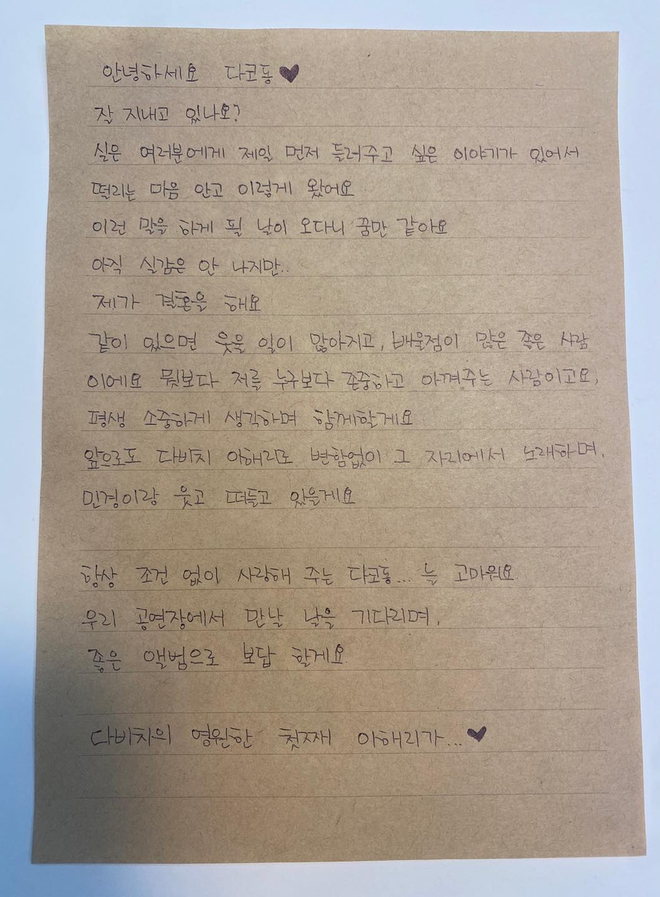 안녕하세요 다코동♥
잘 지내고 있나요?
실은 여러분에게 제일 먼저 들려주고 싶은 이야기가 있어서
떨리는 마음 안고 이렇게 왔어요
이런 말을 하게 될 날이 오다니 꿈만 같아요
아직 실감은 안 나지만..
제가 결혼을 해요
같이 있으면 웃을 일이 많아지고, 배울점이 많은 좋은 사람
이에요 뭣보다 저를 누구보다 존중하고 아껴주는 사람이고요,
평생 소중하게 생각하며 함께할게요
앞으로도 다비치 이해리도 변함없이 그 자리에서 노래하며,
민경이랑 웃고 떠들고 있을게요
항상 조건 없이 사랑해 주는 다코동... 늘 고마워요
우리 공연장에서 만날 날을 기다리며,
좋은 앨범으로 보답 할게요
다비치의 영원한 첫째 이해리가...♥